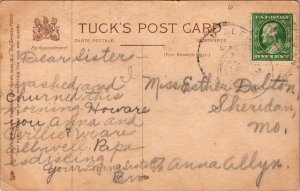 6
TUCK'S POST CARD
CARTE POSTALE.
POSTKARTE.
By Appointment.
(For Address Only.)
ONE CENT
Dear Sister—
I
washed and I
churned this
morning How are
you Anna and
we are
all well Papa
is discing.
Your Loving Sister
Miss Esther Dalton
Sheridan,
Mo.
Anna Allyn.